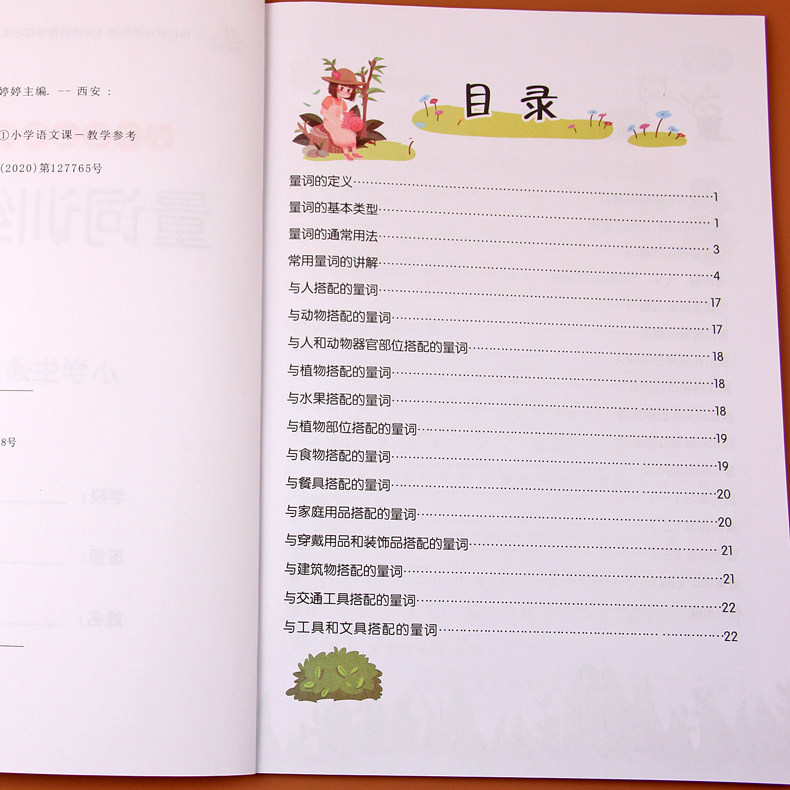 婷婷主编. -- 西安 :
①小学语文课－教学参考
(2020)第127765号
8号
目 录
量词的定义……1
量词的基本类型……1
量词的通常用法……3
常用量词的讲解……4
与人搭配的量词……17
与动物搭配的量词……17
与人和动物器官部位搭配的量词……18
与植物搭配的量词……18
与水果搭配的量词……18
与植物部位搭配的量词……19
与食物搭配的量词……19
与餐具搭配的量词……20
与家庭用品搭配的量词……20
与穿戴用品和装饰品搭配的量词……21
与建筑物搭配的量词……21
与交通工具搭配的量词……22
与工具和文具搭配的量词……22